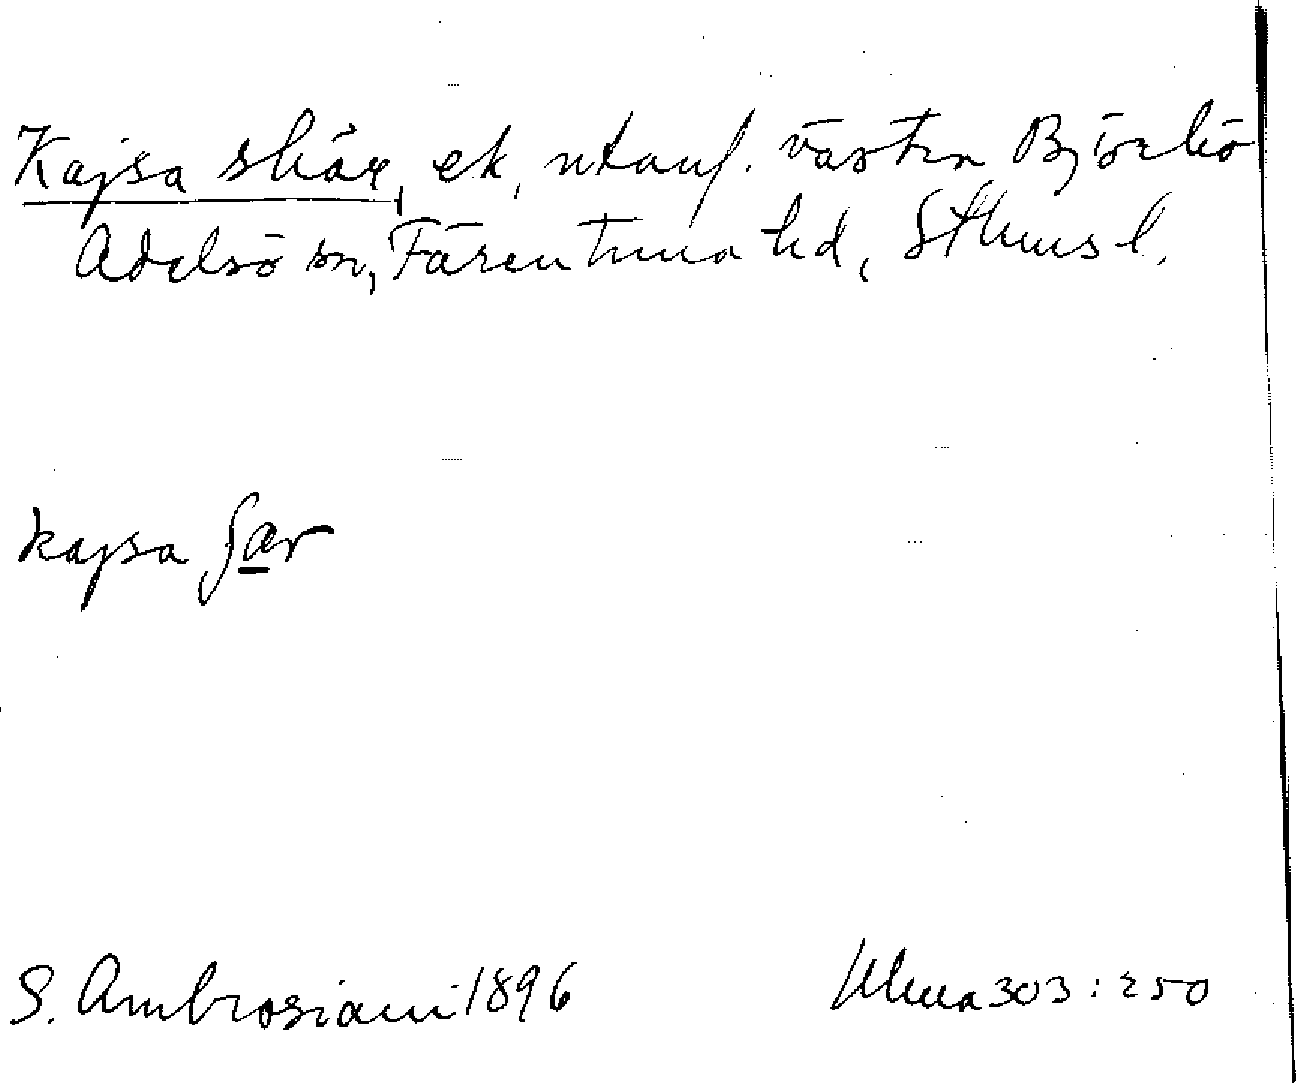 Kajsa skär, ek, utanf. väster Björkö
Adelsö sn, Färentuna hd, Sthms l.
kajsa ʃar
S. Ambrosiani 1896
Uluna 303:250